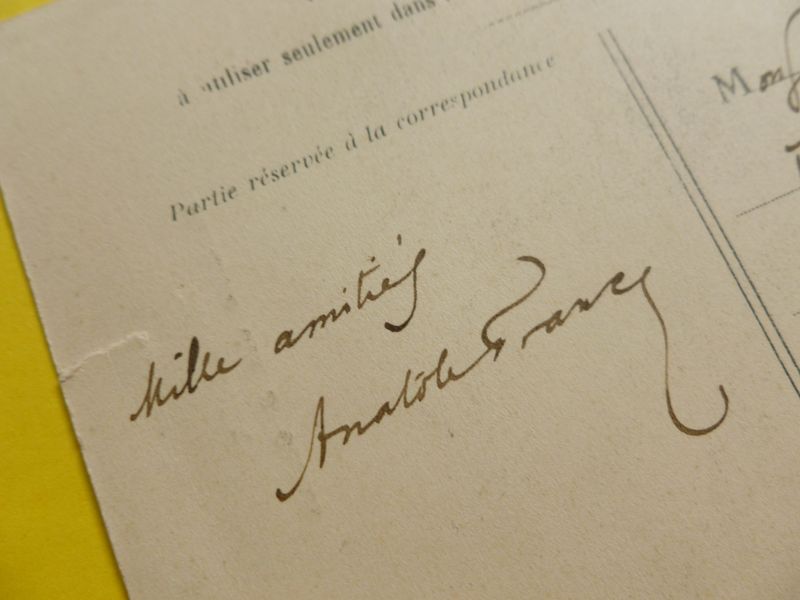 à utiliser seulement dans
Partie réservée à la correspondance
Mille amitiés
Anatole France